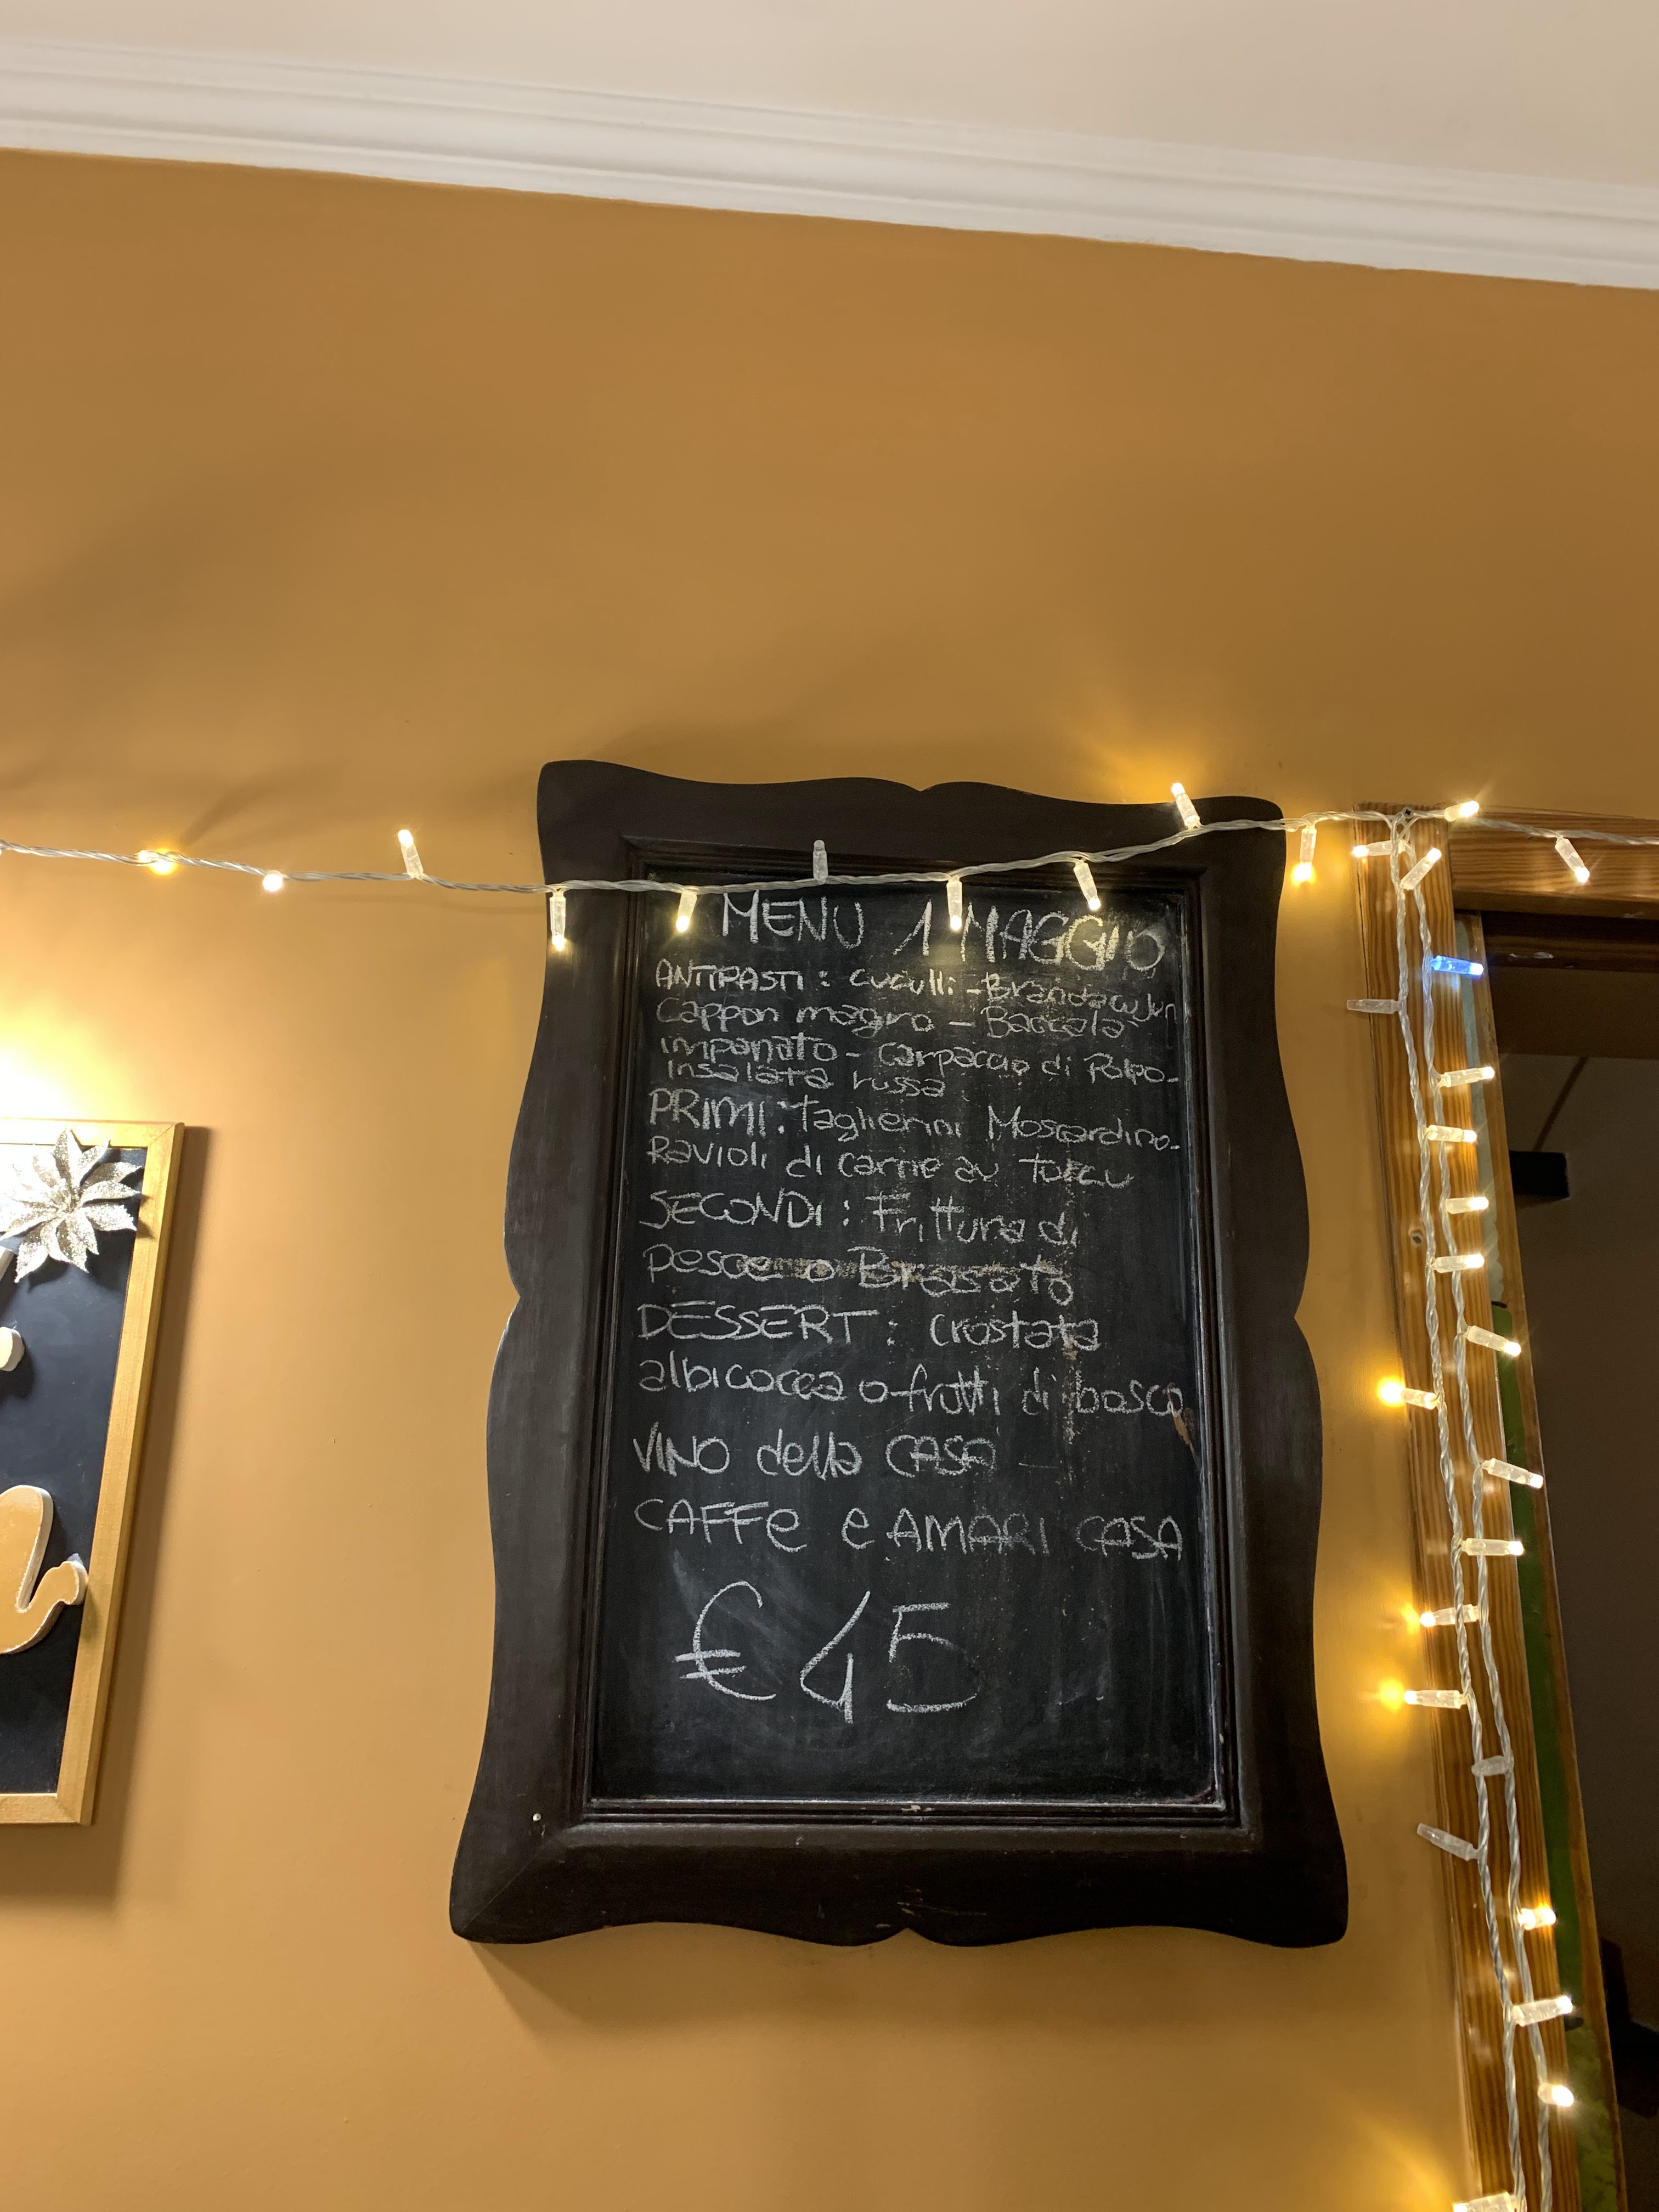 MENU 1 MAGGIO
ANTIPASTI: cuculli - Brandacujun
Cappon magro - Baccala
impanato - Carpaccio di Polpo -
Insalata russa
PRIMI: Taglierini Moscardino -
Ravioli di carne au tuccu
SECONDI: Frittura di
pesce o Brasato
DESSERT: crostata
albicocca o frutti di bosco
VINO della CASA
CAFFE e AMARI CASA
€ 45